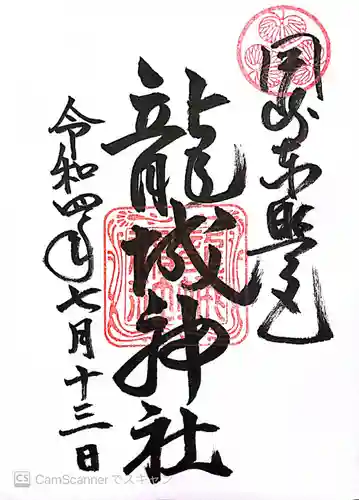 岡崎東照宮
龍城神社
令和四年七月十三日
CS CamScanner でスキャン